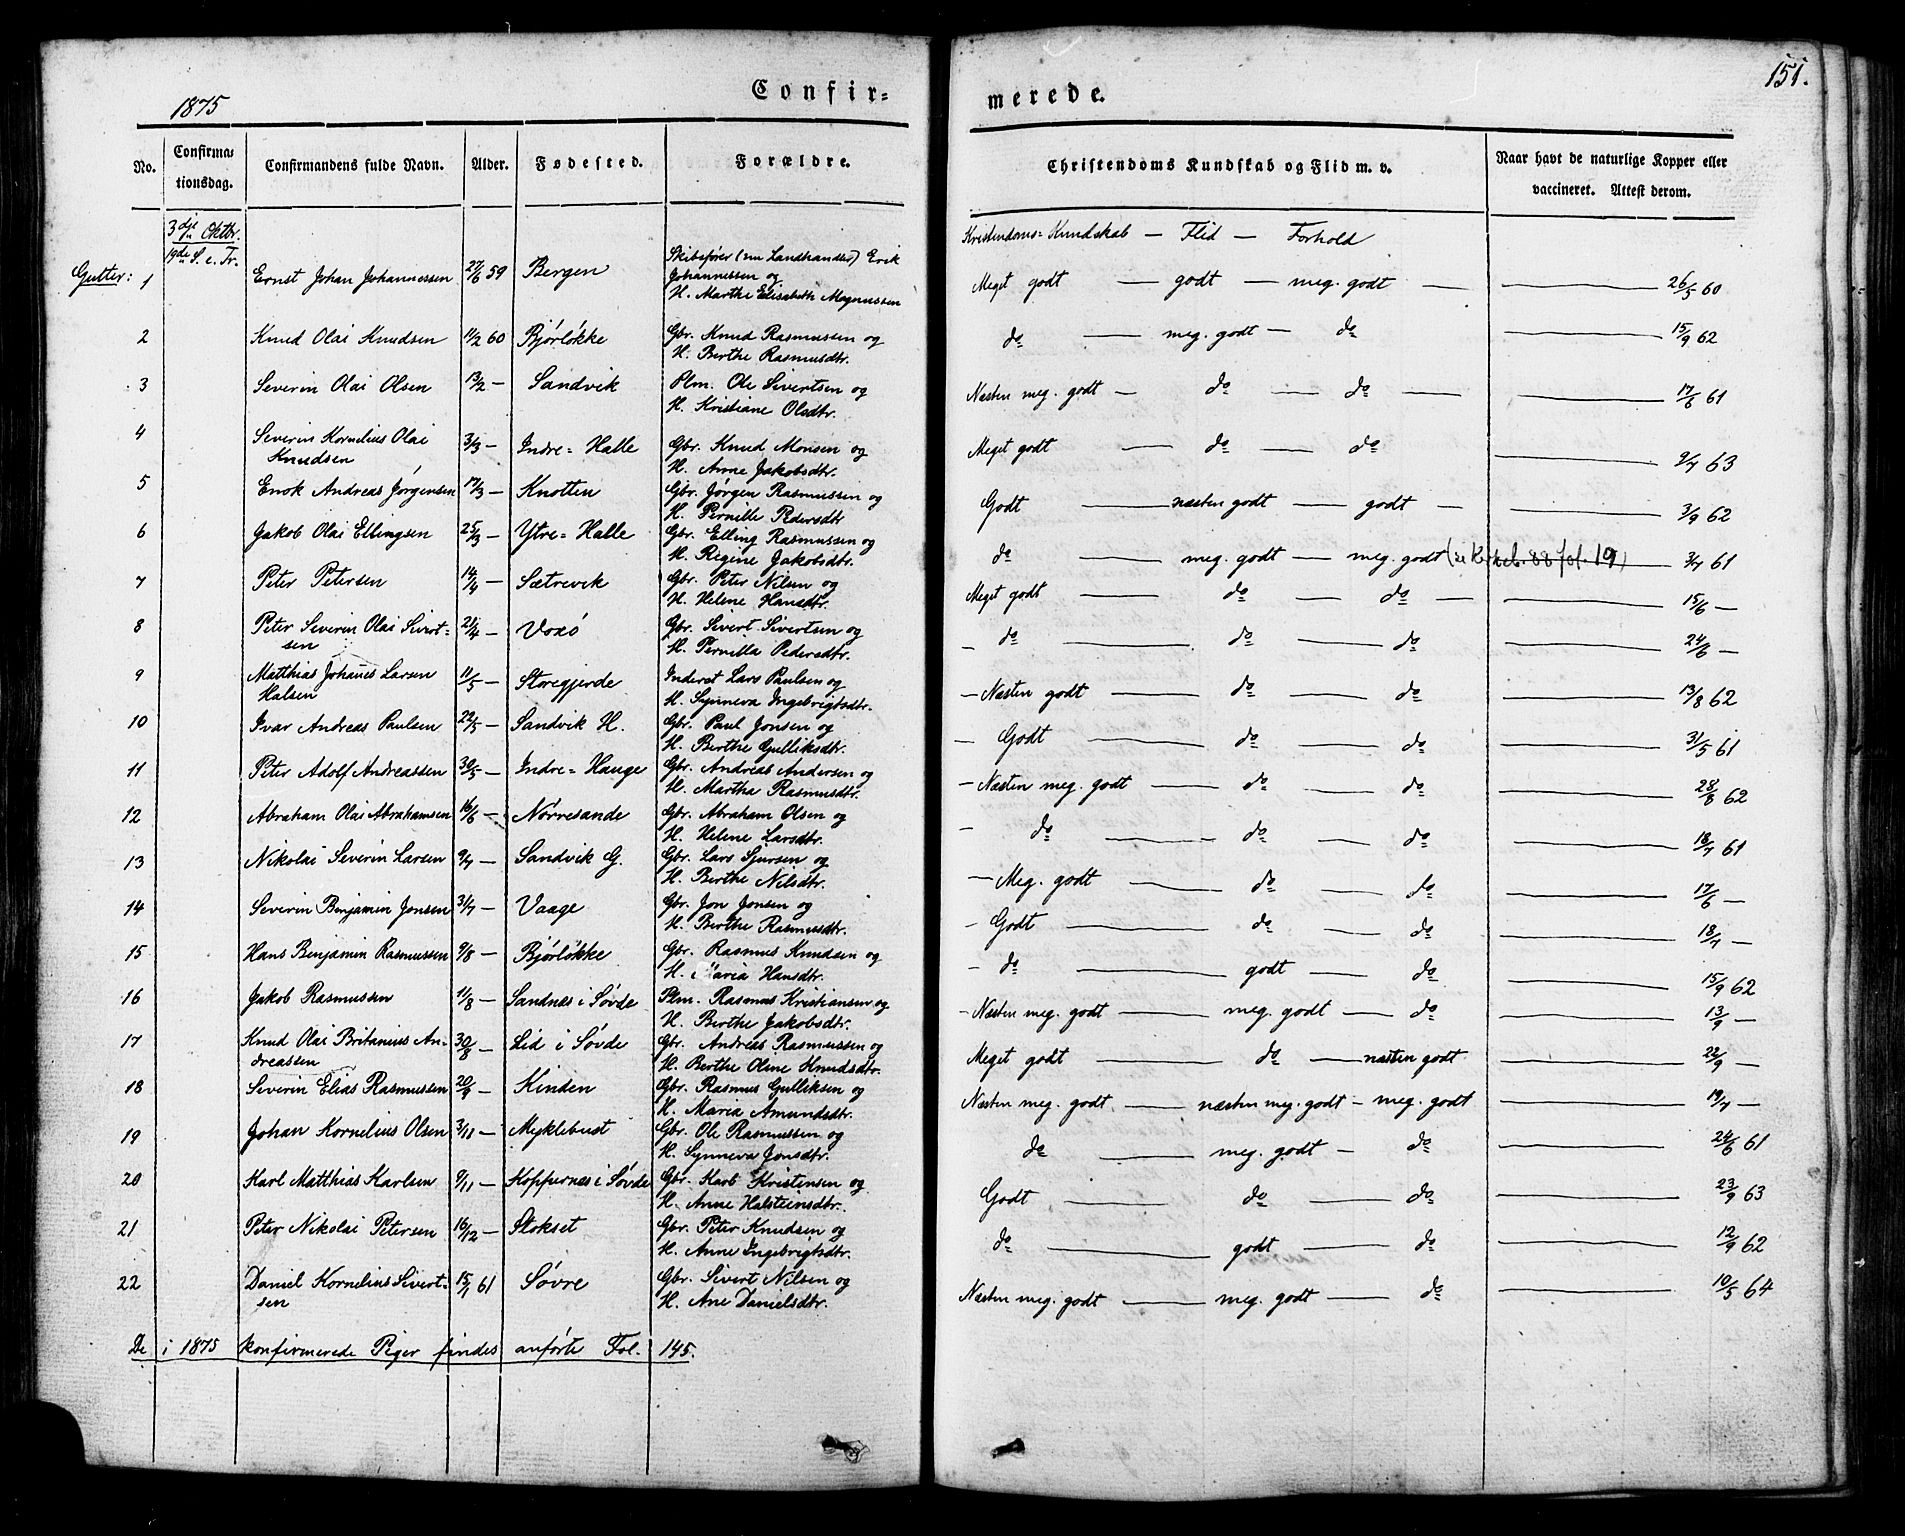 1875
Confir=
merede.
151.
No.
Confirma=
tionsdag.
Confirmandens fulde Navn.
Alder.
Fødested.
Forældre.
Christendoms Kundskab og Flid m. v.
Naar havt de naturlige Kopper eller
vaccineret. Attest derom.
3die Oktbr.
19de S. e. Tr.
Kristendoms=Kundskab — Flid — Forhold
Gutter: 1 Ernst Johan Johannessen 27/6 59 Bergen Skibsfører (nu Landhandler) Erik
Johannessen og
H. Marthe Elisabeth Magnussen
Meget godt — godt — meg. godt — 26/5 60
2 Knud Olai Knudsen 11/2 60 Bjørløkke Gbr. Knud Rasmussen og
H. Berthe Rasmusdtr.
do — meg. godt — do — 15/9 62
3 Severin Olai Olsen 13/2 — Sandvik Plm. Ole Sivertsen og
H. Kristiane Olsdtr.
Næsten meg. godt — do — do — 17/6 61
4 Severin Kornelius Olai
Knudsen 3/3 — Indre=Halle Gbr. Knud Monsen og
H. Anne Jakobsdtr.
Meget godt — do — do — 9/7 63
5 Enok Andreas Jørgensen 17/3 — Knotten Gbr. Jørgen Rasmussen og
H. Pernille Pedersdtr
Godt — næsten godt — godt — 3/9 62
6 Jakob Olai Ellingsen 25/3 — Ytre=Halle Gbr. Elling Rasmussen og
H. Regine Jakobsdtr.
do — meg. godt — meg. godt 88 fol. 19) 3/7 61
7 Peter Petersen 14/4 — Sætrevik Gbr. Peter Nilsen og
H. Helene Hansdtr.
Meget godt — do — do — 15/6 —
8 Peter Severin Olai Sivert=
sen 21/4 — Voxø Gbr. Sivert Sivertsen og
H. Pernilla Pedersdtr.
— do — do — do — 24/6 —
9 Matthias Johanes Larsen
Halsen 11/5 — Storegjerde Inderst Lars Paulsen og
H. Synneva Ingebrigtsdtr.
— Næsten godt — do — do — 13/8 62
10 Ivar Andreas Paulsen 22/5 — Sandvik H. Gbr. Paul Jonsen og
H. Berthe Gulliksdtr.
— Godt — do — do — 31/5 61
11 Peter Adolf Andreassen 30/5 — Indre=Hauge Gbr. Andreas Andersen og
H. Martha Rasmusdtr.
— Næsten meg. godt — do — do — 28/8 62
12 Abraham Olai Abrahamsen 16/6 — Nørresande Gbr. Abraham Olsen og
H. Helene Larsdtr.
— do — do — do — 18/7 61
13 Nikolai Severin Larsen 9/7 — Sandvik G. Gbr. Lars Sjursen og
H. Berthe Nilsdtr.
— Meg. godt — do — do — 17/6 —
14 Severin Benjamin Jonsen 31/7 — Vaage Gbr. Jon Jonsen og
H. Berthe Rasmusdtr.
— Godt — do — do — 18/7 —
15 Hans Benjamin Rasmussen 9/8 — Bjørløkke Gbr. Rasmus Knudsen og
H. Maria Hansdtr.
— do — godt — do — 15/9 62
16 Jakob Rasmussen 11/8 — Sandnes i Søvde Plm. Rasmus Kristiansen og
H. Berthe Jakobsdtr.
— Næsten meg. godt — meg. godt — do — 13/9 —
17 Knud Olai Britanius An=
dreassen 30/8 — Lid i Søvde Gbr. Andreas Rasmussen og
H. Berthe Oline Knudsdtr.
Meget godt — do — næsten godt — 22/9 —
18 Severin Elias Rasmussen 20/9 — Kinden Gbr. Rasmus Gulliksen og
H. Maria Amundsdtr.
Næsten meg. godt — næsten meg. godt — meg. godt — 19/7 —
19 Johan Kornelius Olsen 3/11 — Myklebust Gbr. Ole Rasmussen og
H. Synneva Jonsdtr.
do — meg. godt — do — 24/6 61
20 Karl Matthias Karlsen 9/11 — Koppernæs i Søvde Gbr. Karl Kristensen og
H. Anne Halsteinsdtr.
Godt — do — do — 23/9 63
21 Peter Nikolai Petersen 16/12 — Stokset Gbr. Peter Knudsen og
H. Anne Ingebrigtsdtr.
do — godt — do — 12/9 62
22 Daniel Kornelius Sivert=
sen 15/1 61 Søvre Gbr. Sivert Nilsen og
H. Ane Danielsdtr.
Næsten meg. godt — meg. godt — do — 10/5 64
De i 1875 konfirmerede Piger findes anførte Fol. 145.